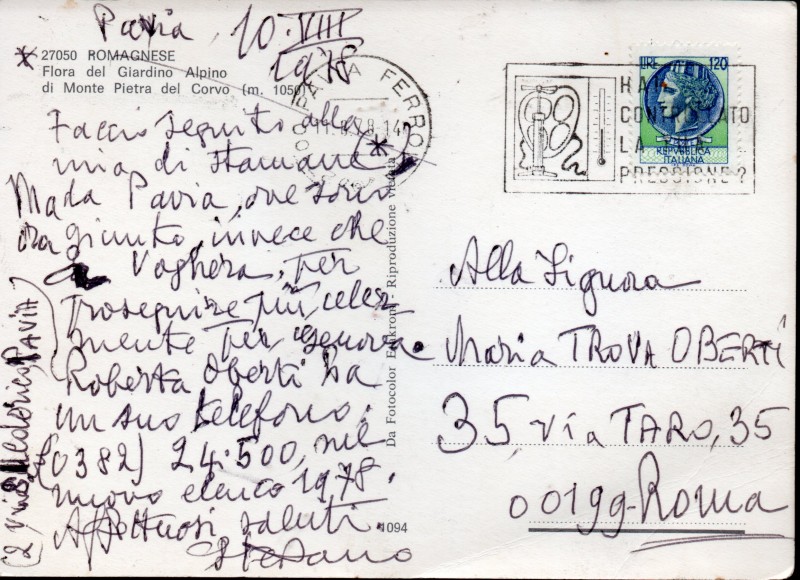 Pavia, 10.VIII
1978
27050 ROMAGNESE
Flora del Giardino Alpino
di Monte Pietra del Corvo (m. 1050)
Faccio seguito alla
mia di stamane
Ma da Pavia, ove sono
ora giunto, invece che
a Voghera, per
proseguire più celer
mente per Genova.
Roberta Oberti ha
un suo telefono:
(0382) 24.500, nel
nuovo elenco 1978.
Affettuosi saluti.
Stefano
(2 via PAVIA)
Da Fotocolor - Riproduzione vietata
1094
PAVIA FERROVIA
LIRE 120
REPUBBLICA
ITALIANA
HAI
CONTROLLATO
LA TUA
PRESSIONE?
Alla Signora
Maria TROVA OBERTI
35, via TARO, 35
00199-Roma